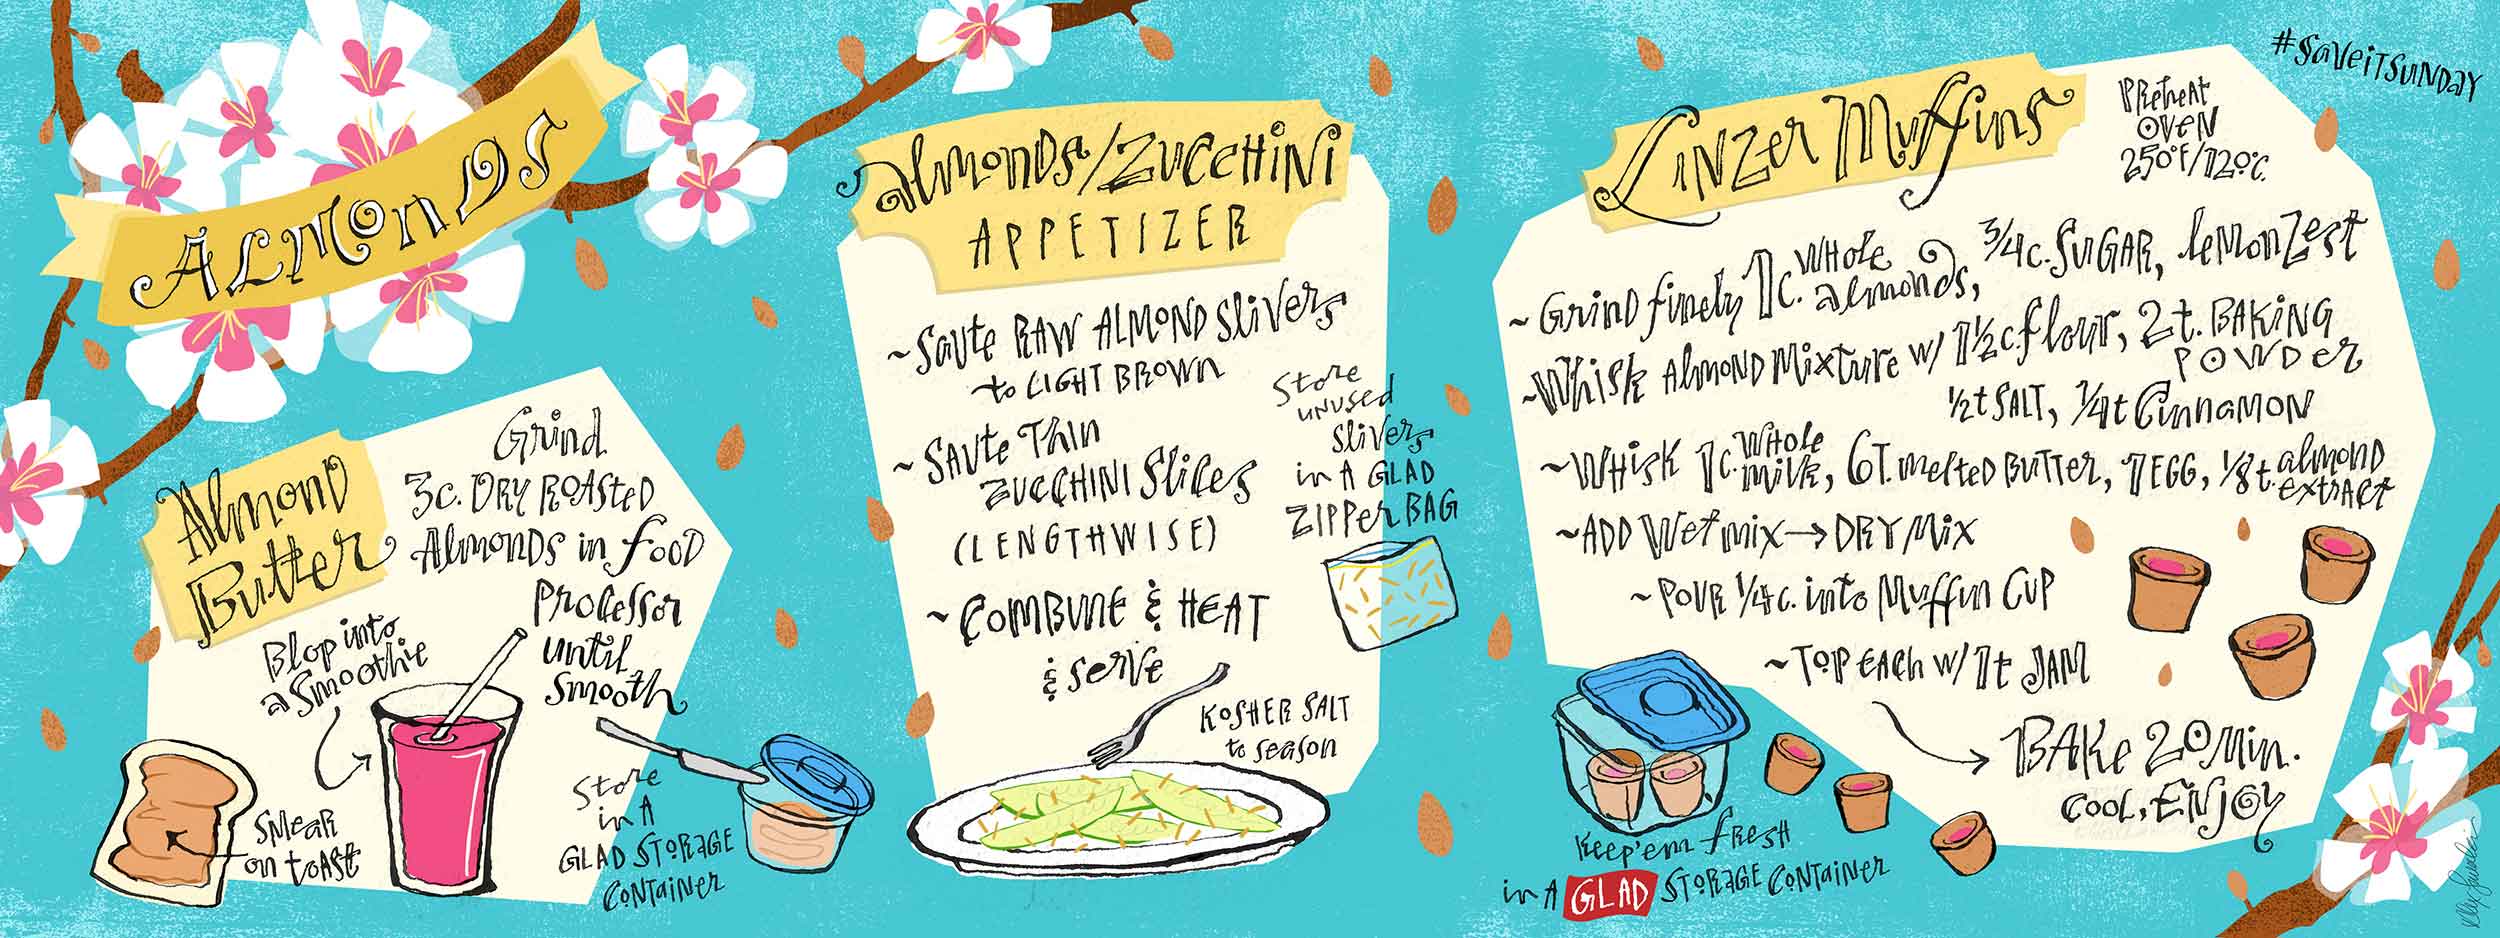 ALMONDS
Almond
Butter
Grind
3c. DRY ROASTED
Almonds in food
Processor
until
smooth
Blop into
a smoothie
Smear
on toast
Store
in A
GLAD STORAGE
CONTAINER
almonds/ZUCCHINI
APPETIZER
~Saute RAW ALMOND Slivers
to LIGHT BROWN
~SAUTE THIN
ZUCCHINI Slices
(LENGTHWISE)
~COMBINE & HEAT
& serve
Store
unused
slivers
in A GLAD
ZIPPer BAG
KOSHER SALT
to season
#SaveitSunday
Linzer Muffins
Preheat
OVEN
250°F/120°C.
~Grind finely 1c. WHOLE almonds, 3/4c. SUGAR, lemon zest
~Whisk Almond Mixture w/ 1 1/2 c. flour, 2t. BAKING
POWDER
1/2t SALT, 1/4t Cinnamon
~WHISK 1c. WHOLE milk, 6T. melted BUTTER, 1 EGG, 1/8t. almond extract
~ADD Wet mix → DRY Mix
~POUR 1/4c. into Muffin CUP
~TOP EACH w/ 1t JAM
BAKe 20 min.
COOL, ENJOY
Keep 'em fresh
in A GLAD STORAGE CONTAINER